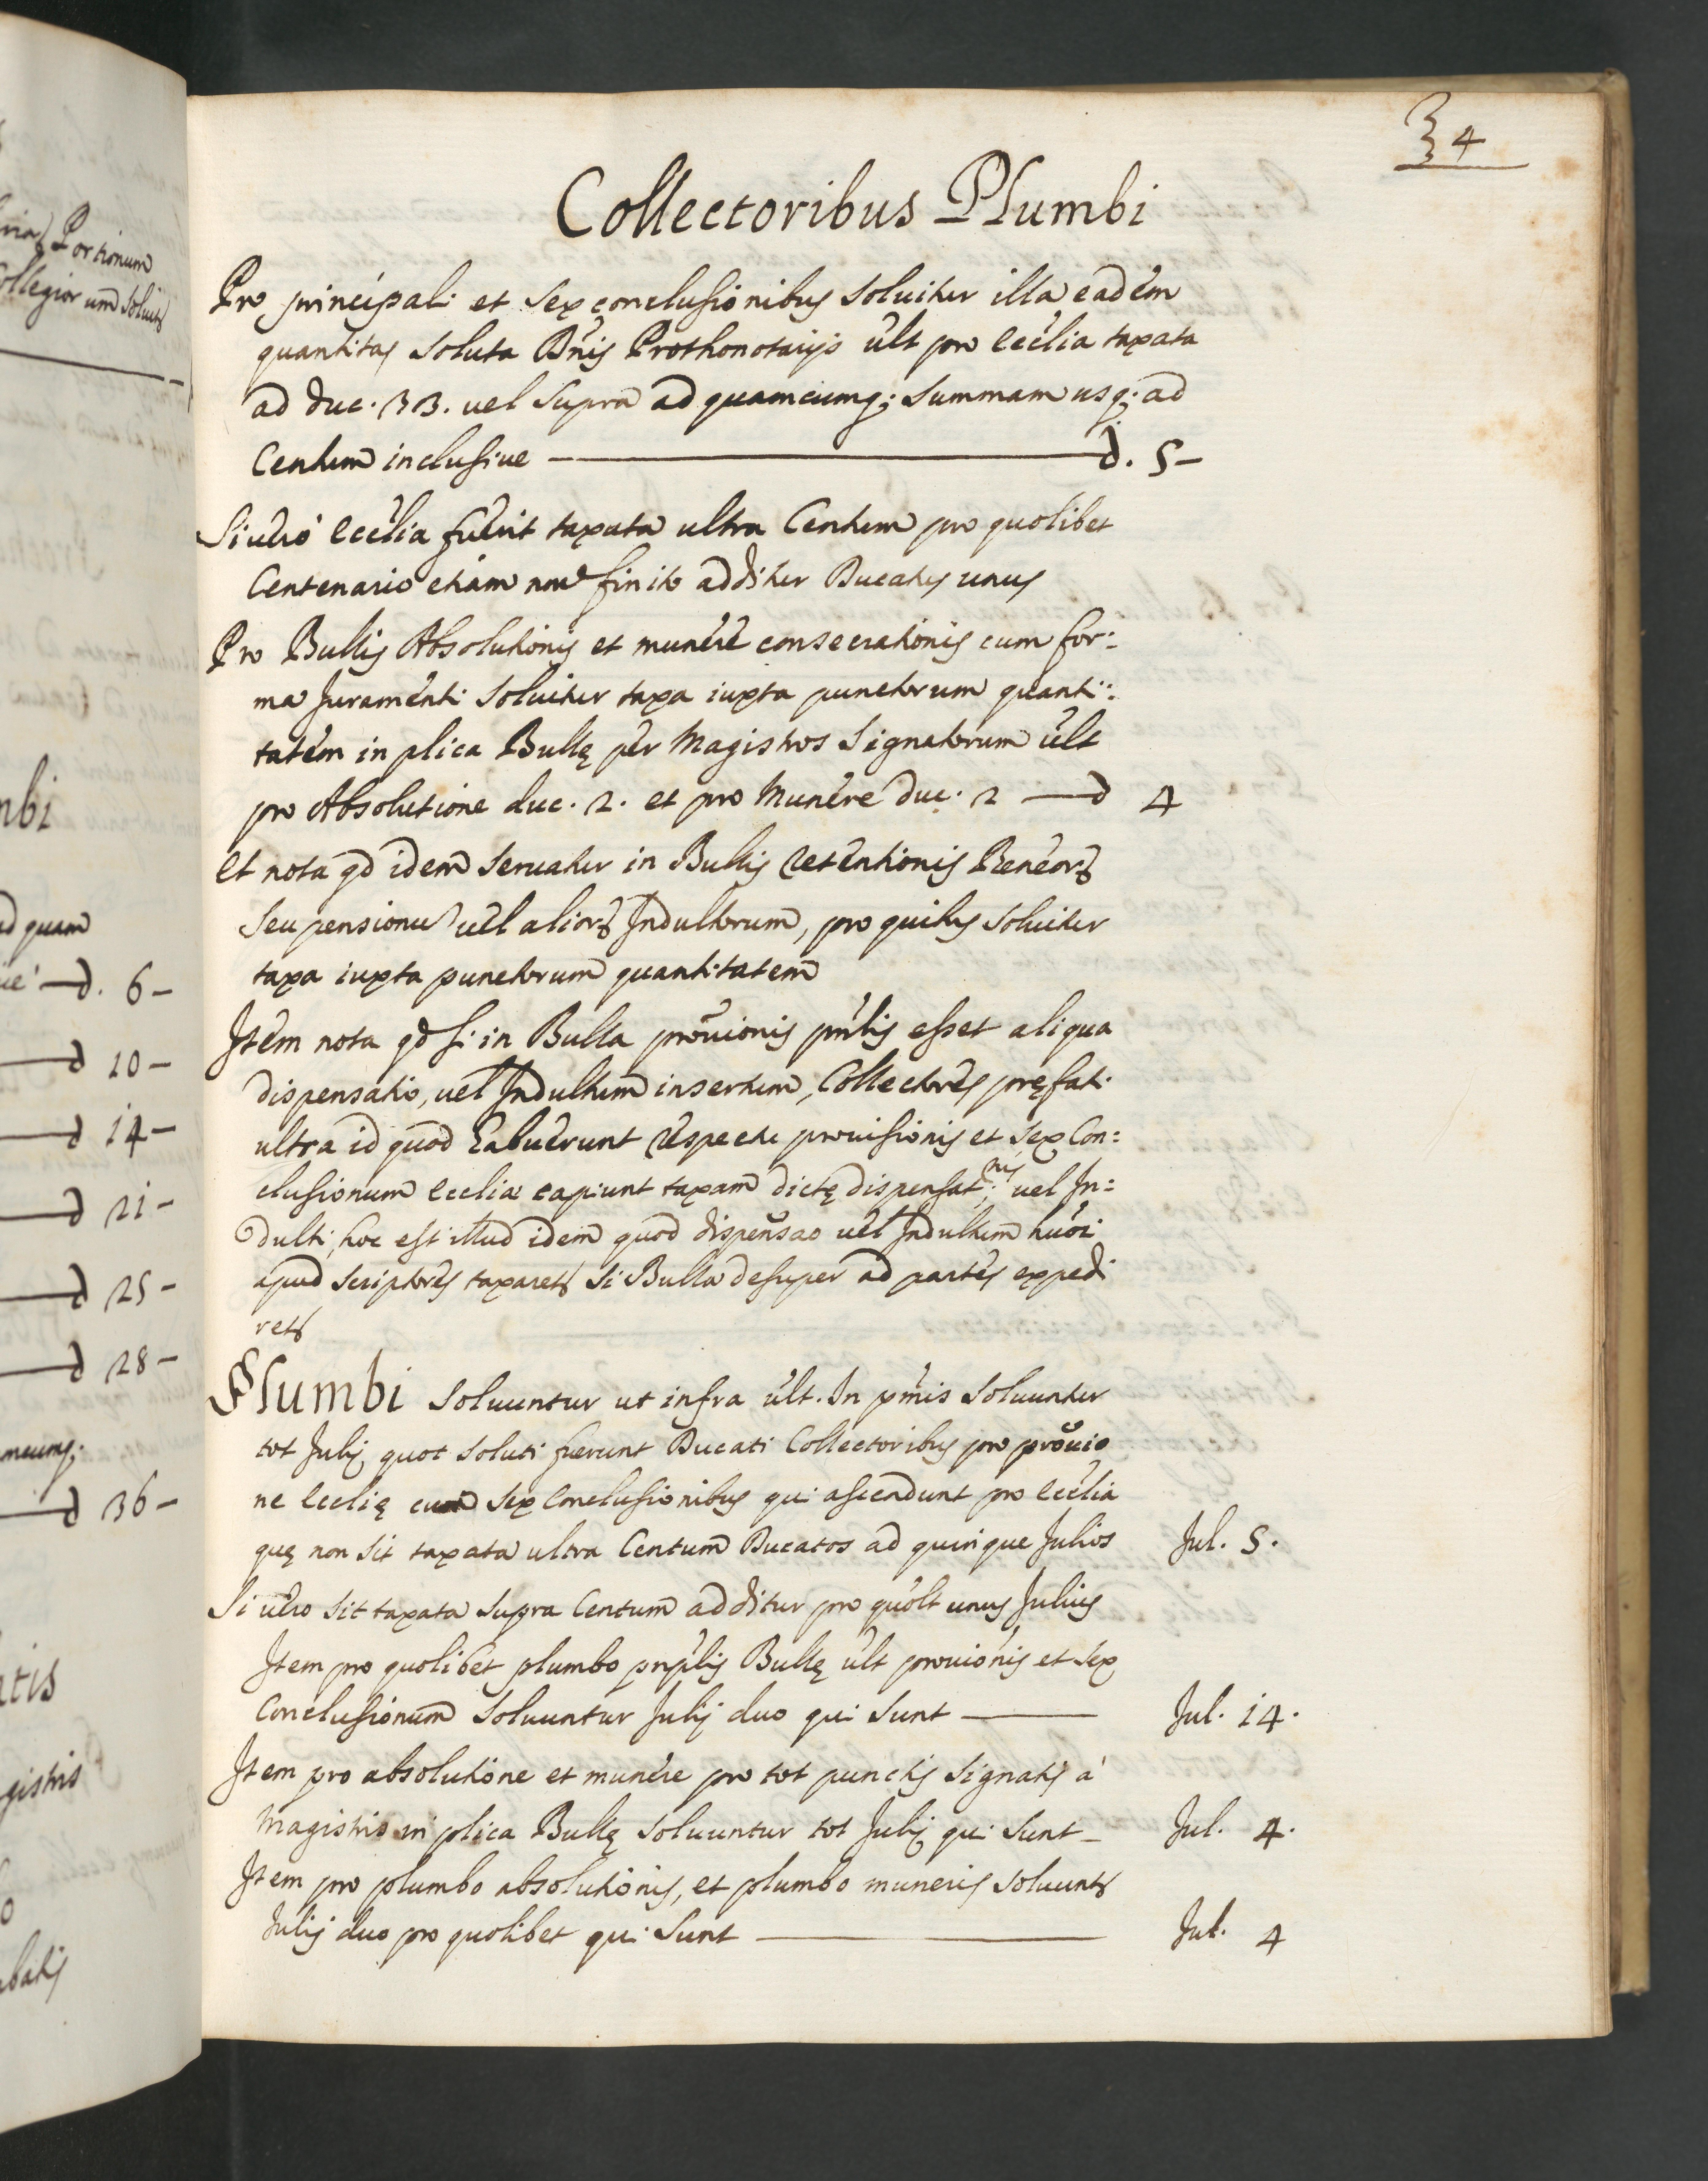 34
Collectoribus Plumbi
Pro principali et sex conclusionibus soluitur illa eadem
quantitas soluta Dnis Prothonotarijs ult pro Ecclia taxata
ad duc. 33. uel supra ad quamcumq; summam usq; ad
Centum inclusiue — d. 5 –
Si uero Ecclia fuerit taxata ultra Centum pro quolibet
Centenario etiam non finito additur Ducatus unus
Pro Bullis Absolutionis et munere consecrationis cum for:
ma Juramenti soluitur taxa iuxta punctorum quanti:
tatem in plica Bullę per Magistros signatorum ult
pro Absolutione duc. 2. et pro Munere duc. 2 — d 4
Et nota qd idem seruatur in Bullis retentionis Beneor
seu pensionu uel alior Indultorum, pro quibus soluitur
taxa iuxta punctorum quantitatem
Item nota qd si in Bulla prouionis pnlis esset aliqua
dispensatio, uel Indultum insertum, Collectores pręfati
ultra id quod habuerunt respectu prouisionis et sex Con:
clusionum Eccliæ capiunt taxam dictę dispensat:nis uel In:
dulti, hoc est illud idem quod dispensao uel Indultum hmoi
apud scriptores taxaret si Bulla desuper ad partes expedi
ret
Plumbi soluuntur ut infra ult. In pmis soluuntur
tot Julij quot soluti fuerunt Ducati Collectoribus pro prouio
ne Ecclię cum sex conclusionibus qui ascendunt pro Ecclia
quę non sit taxata ultra Centum Ducatos ad quinque Julios Jul. 5.
Si uero sit taxata supra Centum additur pro quolt unus Julius
Item pro quolibet plumbo pnplis Bullę ult prouionis et sex
Conclusionum soluuntur Julij duo qui sunt — Jul. 14.
Item pro absolutione et munere pro tot punctis signatis à
Magistris in plica Bullę soluuntur tot Julij qui sunt – Jul. 4.
Item pro plumbo absolutionis, et plumbo muneris soluunt
Julij duo pro quolibet qui sunt — Jul. 4